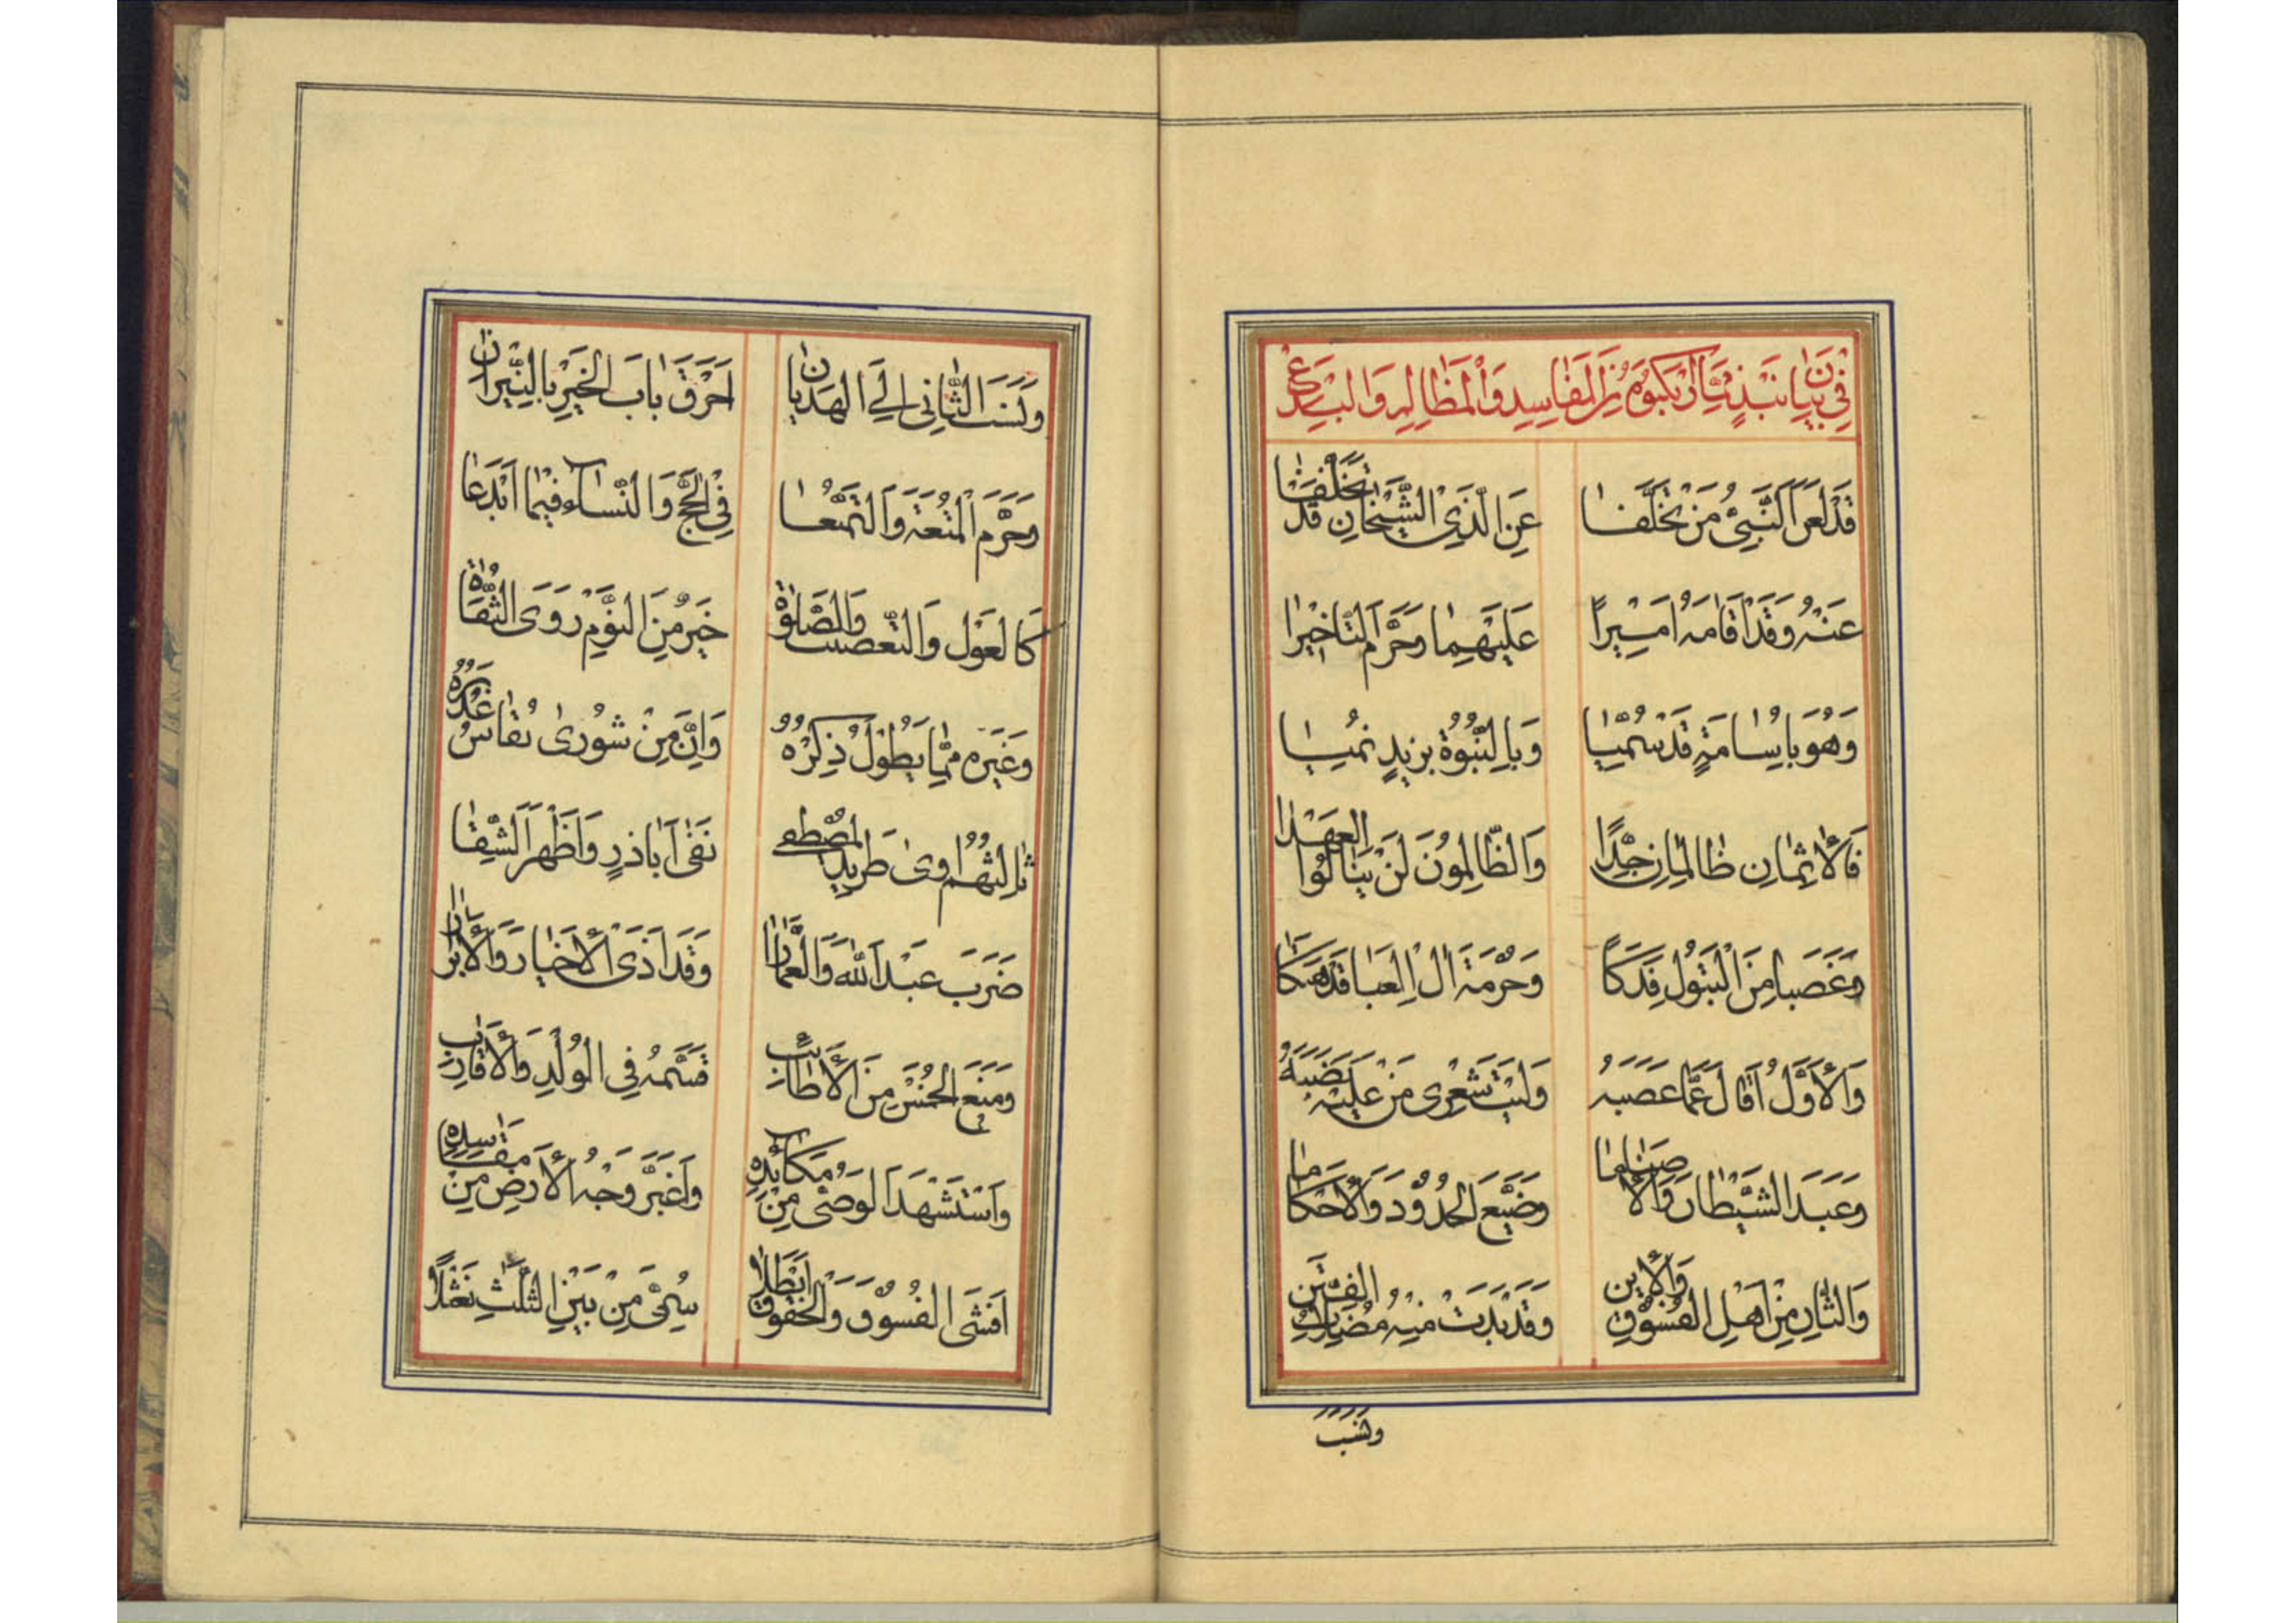 في بيان نبذ مما ارتكبوه من المفاسد والمظالم والبدع
قَد لَعَنَ النَّبِيُّ مَنْ تَخَلَّفَا عَنِ الَّذِي الشَّيْخَانِ قَدْ تَخَلَّفَا
عَنْهُ وَقَدْ اَقَامَهُ اَمِيْرًا عَلَيْهِمَا وَحَرَّمَ التَّاخِيْرَا
وَهُوَ بِاُسَامَةٍ قَدْ سُمِّيَا وَبِالنُّبُوَّةِ بزيدٍ نُمِيَا
فَالْاِثْمَانِ ظَالِمَانِ جِدًّا وَالظَّالِمُونَ لَنْ يَنَالُوا الْعَهْدَا
وَغَصَبا مِنَ الْبَتُولِ فَدَكًا وَحُرْمَةَ الِ الْعَبَا قَد هَتَكَا
وَالْاَوَّلُ اَقَالَ عَمَّا غَصَبَهُ وَلَيْتَ شَعْرِى مَنْ عَلَيْهِ نَصَبَهُ
وَعَبَدَ الشَّيْطَانَ وَالْاَصْنَامَا وَضَيَّعَ الْحُدُوْدَ وَالْاَحْكَامَا
وَالثَّانِ مِنْ اَهْلِ الْفُسُوْقِ وَالْاِبن وَقَدْ بَدَتْ مِنْهُ الْفِتَن
وَنَسَبَ
وَنَسَبَ الثَّانِى اِلَى الْهَذَيَانِ اَحْرَقَ بَابَ الْخَيْرِ بِالنِّيْرَانِ
وَحَرَّمَ الْمُتْعَةَ وَالتَّمَتُّعَا فِي الْحَجِّ وَالنِّسَاءِ فِيْمَا اَبْدَعَا
كَالْعَوْلِ وَالتَّعْصِيْبِ وَالصَّلوٰةُ خَيْرٌ مِنَ النَّوْمِ رَوَى الثِّقَاةُ
وَغَيْرِهِ مِمَّا يَطُوْلُ ذِكْرُهُ وَاِنَّ مِنْ شُورٰى يُقَاسُ غَدْرُهُ
ثَالِثُهُم اٰوىٰ طَرِيدَ المُصْطَفٰى نَفٰى اَبَاذَرٍ وَاَظْهَرَ الشِّقَا
ضَرَبَ عَبْدَ اللّٰهِ وَالْعَمَّارَا وَقَد اَذَى الْاَخْيَارَ وَالْاَبْرَارَا
وَمَنَعَ الْخُمْسَ مِنَ الْاَطَائِبِ قَسَّمَهُ فِي الْوُلْدِ وَالْاَقَارِبِ
وَاسْتَشْهَدَ الْوَصِىُّ مِنْ مَكَائِدِهِ وَاَغْبَرَّ وَجْهُ الْاَرْضِ مِنْ مَفَاسِدِهِ
اَفْشَى الْفُسُوْقَ وَالْحُقُوقَ اَبْطَلَا سُمِّىَ مِنْ بَيْنِ الثَّلَثِ نَعْثَلًا